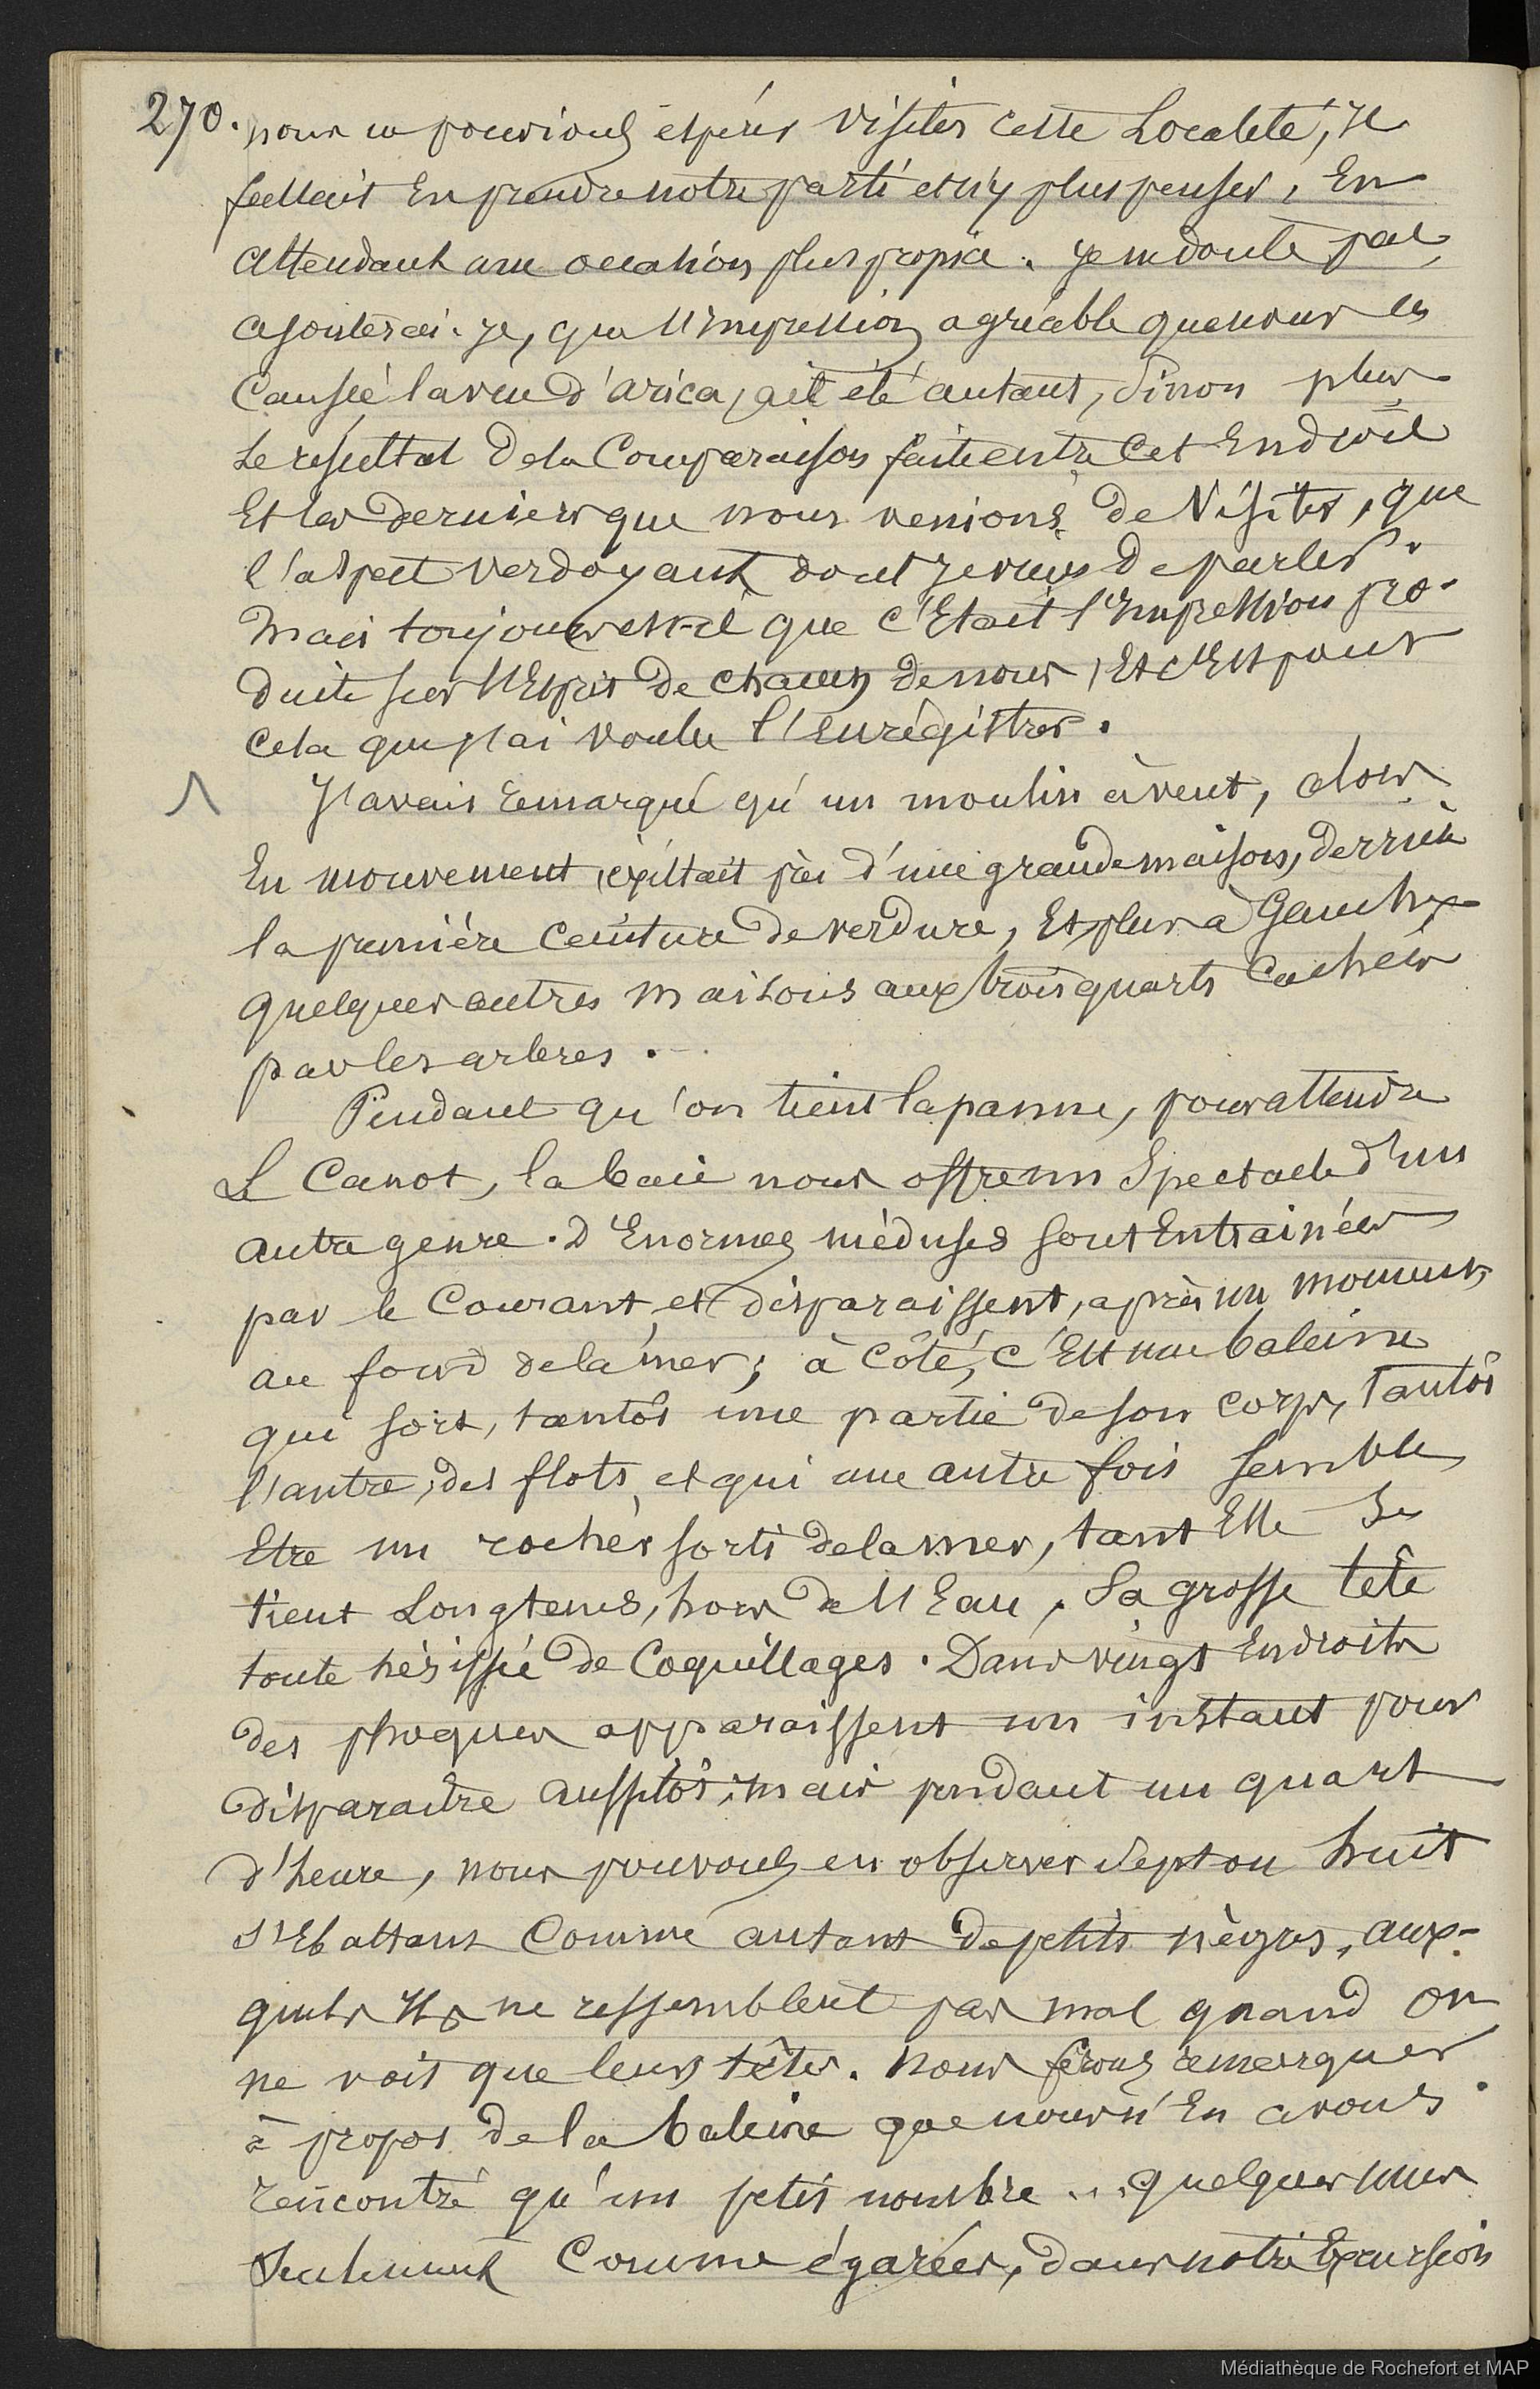 270. nous ne pouvions espérer visiter cette Localité, Il
fallait En prendre notre parti et n'y plus penser, En
Attendant une occation plus propice. Je ne doute pas,
ajouterai-je, que l'Impression agréable que nous en
Causée la vue d'Arica, ait été autant, Sinon plus
Le résultat De la Comparaison faite entre Cet Endroit
Et les derniers que nous venions de Visiter, que
l'aspect verdoyant dont je viens De parler.
Mais toujours est-il que C'Etait l'Impression pro-
duite sur l'Esprit De chacun De nous, Et c'Est pour
Cela que j'ai voulu l'Enrégistrer.
J'avais Remarqué qu'un moulin à vent, alors
En mouvement, éxistait près d'une grande maison, derrière
la première Ceinture De verdure, Et plus à Gauche
quelques autres maisons aux trois quarts Cachées
par les arbres.
Pendant qu'on tient la panne, pour attendre
Le Canot, la baie nous offre un Spectacle d'un
autre genre. D'Enormes méduses sont Entrainées
par le Courant et disparaissent, après un moment,
au fond de la mer; à Côté, C'Est une baleine
qui sort, tantôt une partie De son Corps, tantôt
l'autre, des flots, et qui une autre fois semble
Etre un rocher sorti De la mer, tant Elle Se
tient Longtems, hors de l'Eau, Sa grosse tête
toute hérissée De Coquillages. Dans vingt Endroits
des phoques apparaissent un instant pour
Disparaître aussitôt; mais pendant un quart
d'heure, nous pouvons en observer Sept ou huit
S'Ebattant Comme autant De petits nègres, aux-
quels Ils ne ressemblent pas mal quand on
ne voit que leurs têtes. Nous ferons remarquer
à propos De la baleine que nous n'En avons
rencontré qu'un petit nombre... quelques unes
Seulement Comme égarées, dans notre Excursion
Médiathèque de Rochefort et MAP